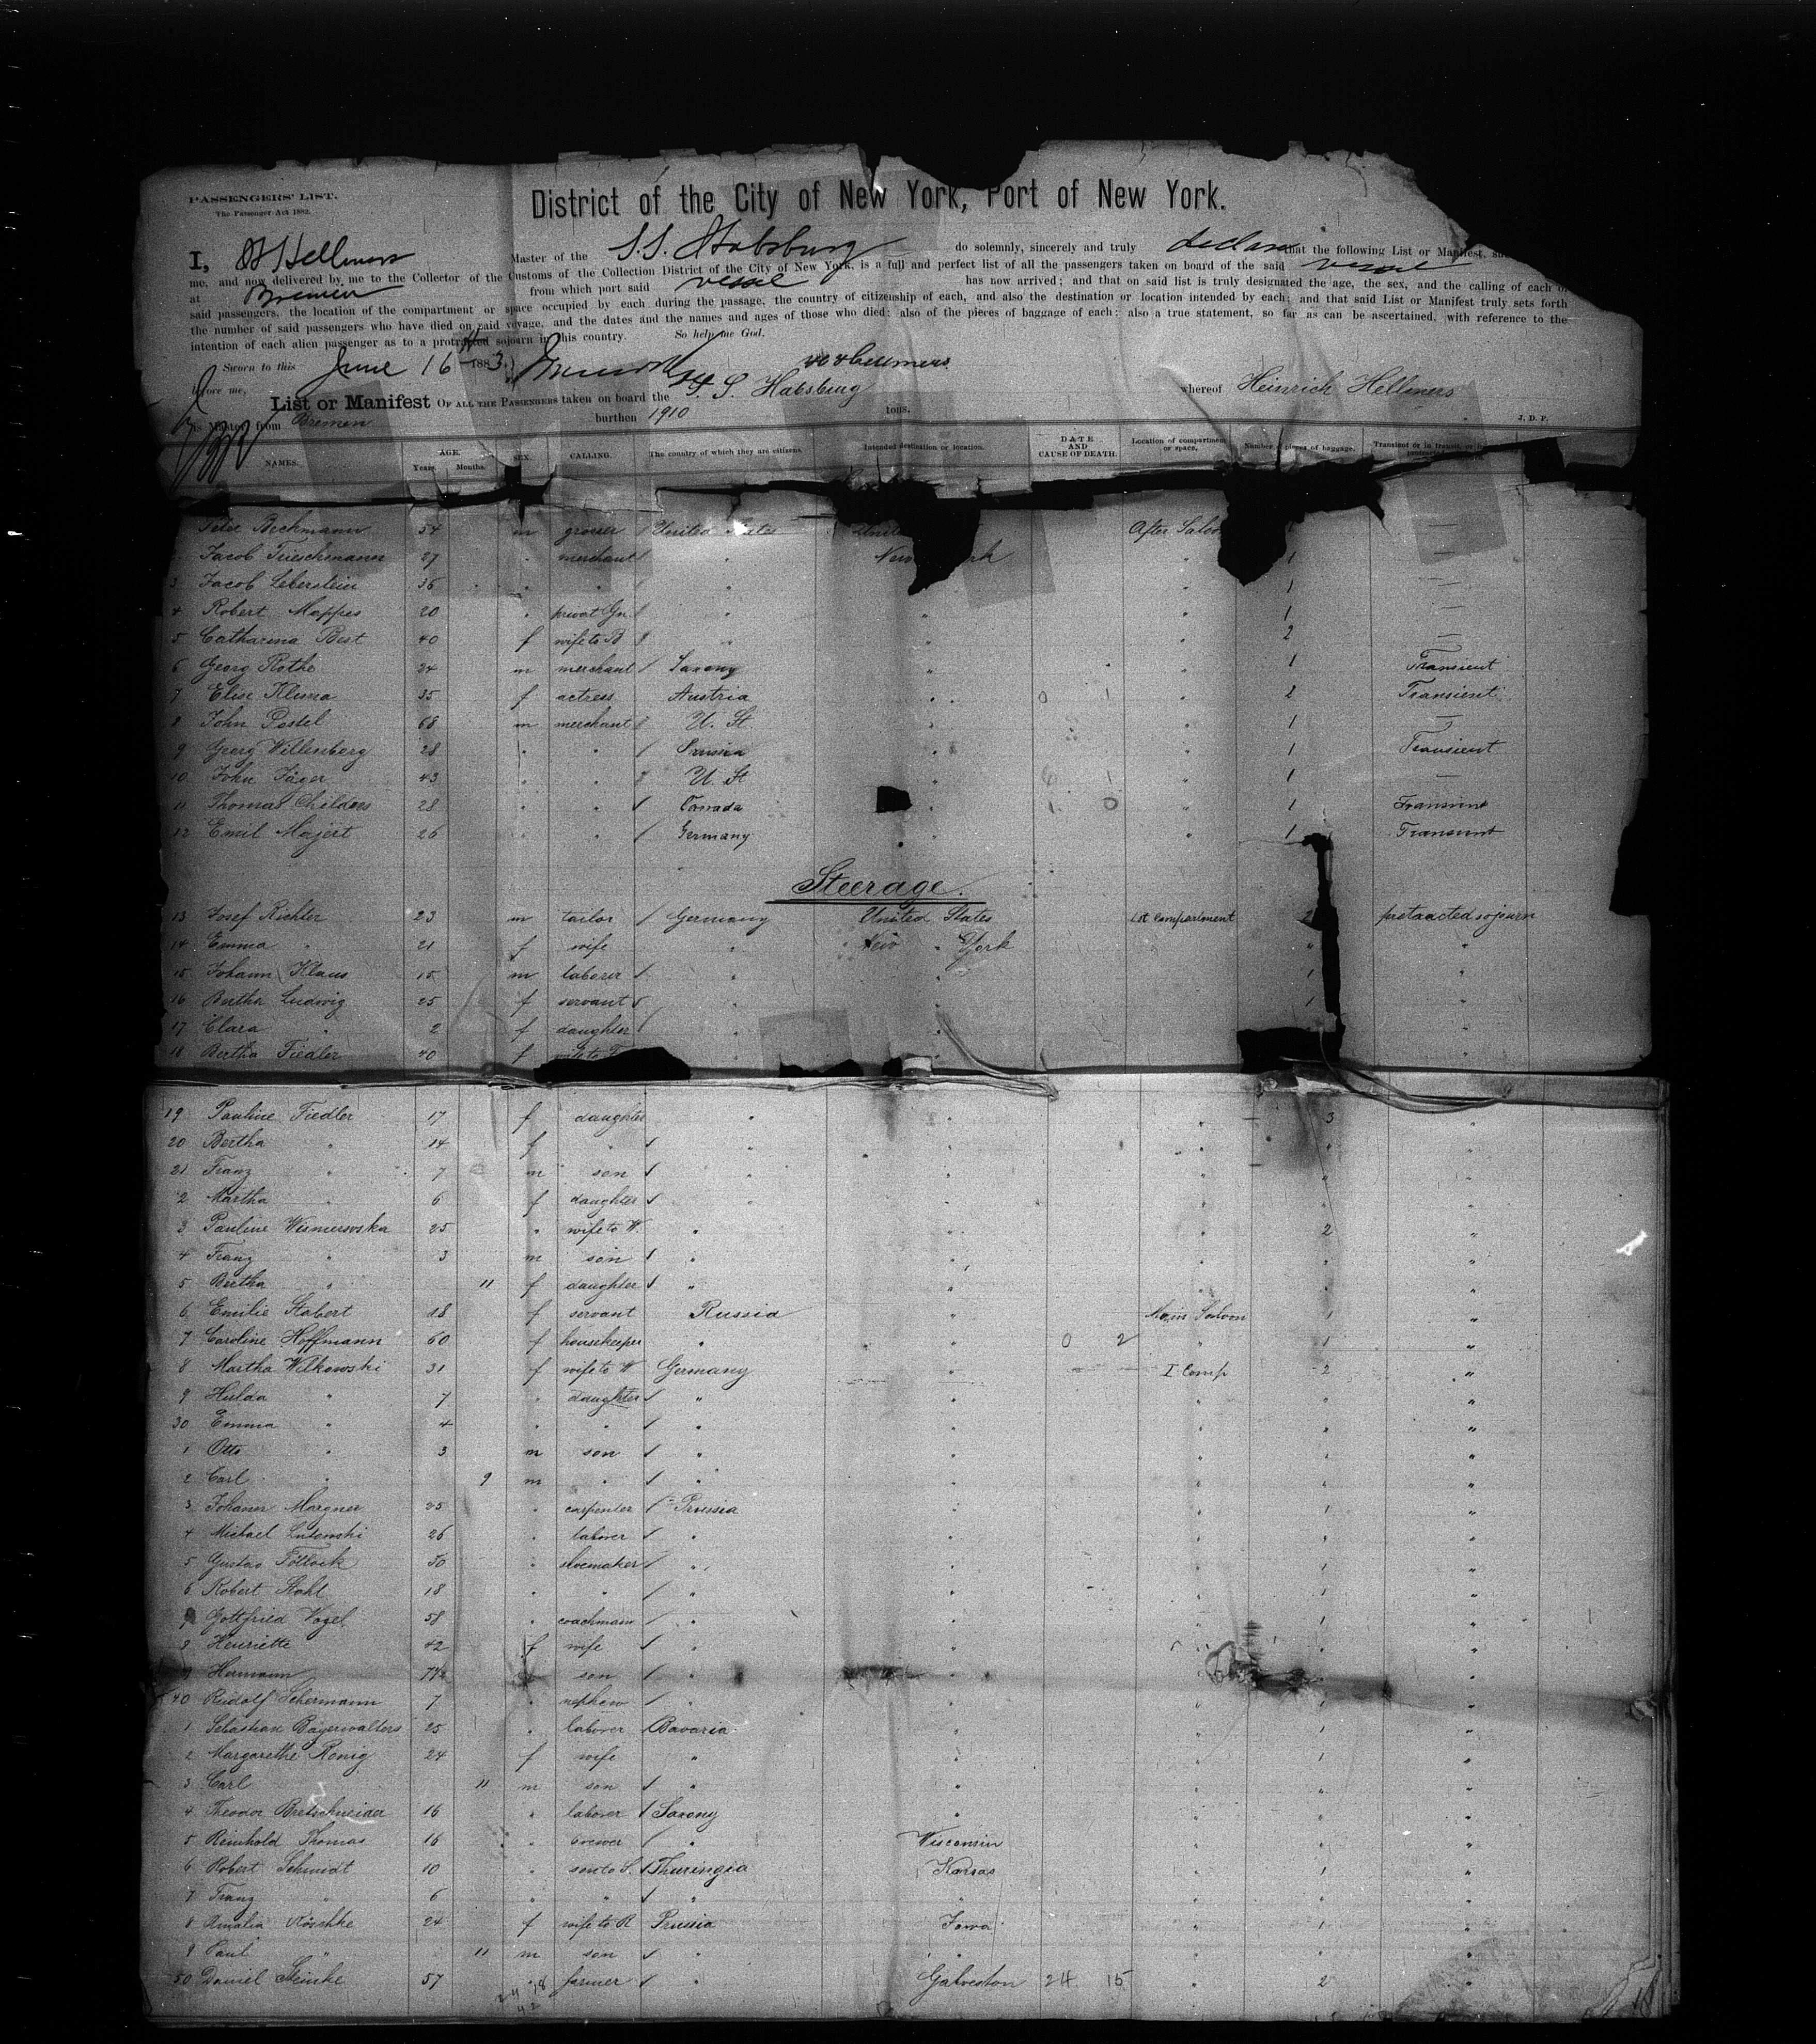 PASSENGERS' LIST.
The Passenger Act 1882.
District of the City of New York, Port of New York.
I, H Hellmers Master of the S.S. Habsburg do solemnly, sincerely and truly declare that the following List or Manifest,
me, and now delivered by me to the Collector of the Customs of the Collection District of the City of New York, is a full and perfect list of all the passengers taken on board of the said vessel
at Bremen from which port said vessel has now arrived; and that on said list is truly designated the age, the sex, and the calling of each of
said passengers, the location of the compartment or space occupied by each during the passage, the country of citizenship of each, and also the destination or location intended by each; and that said List or Manifest truly sets forth
the number of said passengers who have died on said voyage, and the dates and the names and ages of those who died; also of the pieces of baggage of each; also a true statement, so far as can be ascertained, with reference to the
intention of each alien passenger as to a protracted sojourn in this country. So help me God.
Sworn to this June 16th 1883 H Hellmers
before me,
List or Manifest OF ALL THE PASSENGERS taken on board the S. S. Habsburg whereof Heinrich Hellmers
is Master, from Bremen burthen 1910 tons. J. D. P.
NAMES. AGE. Years Months. SEX. CALLING. The country of which they are citizens. Intended destination or location. DATE AND CAUSE OF DEATH. Location of compartment or space. Number of pieces of baggage. Transient or in transit, or
54 m grocer United States After Saloon
Jacob 27 " merchant " New York " 1 —
3 Jacob Leberstein 36 " " " " 1 —
4 Robert Mappes 20 " privat Gn. " " " 1 —
5 Catharina Best 40 f wife to B " " " 2 —
6 Georg Rothe 24 m merchant Saxony " " 1 Transient
7 Elise Klima 35 f actress Austria " 0 1 " 2 Transient
8 John Postel 68 m merchant U. St " " 1 —
9 Georg Willenberg 28 " " Prussia " " 1 Transient
10 John Jäger 43 " " U. St " " 1 —
11 Thomas Childers 28 " " Canada " 1 0 " 1 Transient
12 Emil Majert 26 " " Germany " " 1 Transient
Steerage.
13 Josef Richter 23 m tailor Germany United States 1st Compartment 2 protracted sojourn
14 Emma " 21 f wife " New York " "
15 Johann Klaus 15 m laborer " " 1 "
16 Bertha Ludwig 25 f servant " " 1 "
17 Clara " 2 f daughter " " "
18 Bertha Fiedler 40 f wife to F "
19 Pauline Fiedler 17 f daughter " " " 3 "
20 Bertha " 14 f " " " " " "
21 Franz " 7 m son " " " " "
2 Martha " 6 f daughter " " " " "
3 Pauline 25 " wife to W. " " " 2 "
4 Franz " 3 m son " " " " "
5 Bertha " 11 f daughter " " " " "
6 Emilie Stabert 18 f servant Russia " Main Saloon 1 "
7 Caroline Hoffmann 60 f housekeeper " " 0 2 " 1 "
8 Martha Wilkowski 31 f wife to W Germany " I Comp 2 "
9 Hulda " 7 " daughter " " " " "
30 Emma " 4 " " " " " " "
1 Otto " 3 m son " " " " "
2 Carl " 9 m " " " " " "
3 Johann Morgner 25 " carpenter Prussia " " 1 "
4 Michael 26 " laborer " " " " "
5 Gustav 30 " shoemaker " " " 1 "
6 Robert Stahl 18 " " " " " 1 "
7 Gottfried Vogel 58 " coachman " " " 1 "
8 Henriette 42 f wife " " " " "
9 Hermann son " " "
40 Rudolf Schermann 7 " nephew " " " 1 "
1 Sebastian Bayerwalters 25 " laborer Bavaria " " 1 "
2 Margarethe König 24 f wife " " " 1 "
3 Carl 11 m son " " " " "
4 Theodor Bretschneider 16 " laborer Saxony " " " "
5 Reinhold Thomas 16 " brewer " Wisconsin " " "
6 Robert Schmidt 10 " son to S. Thuringia Kansas " 1 "
7 Franz " 6 " " " " " " "
8 Amalia Röschke 24 f wife to R Prussia Iowa " 1 "
9 Paul " 11 m son " " " " "
50 Daniel Steinke 57 " farmer " Galveston 24 15 " 2 "